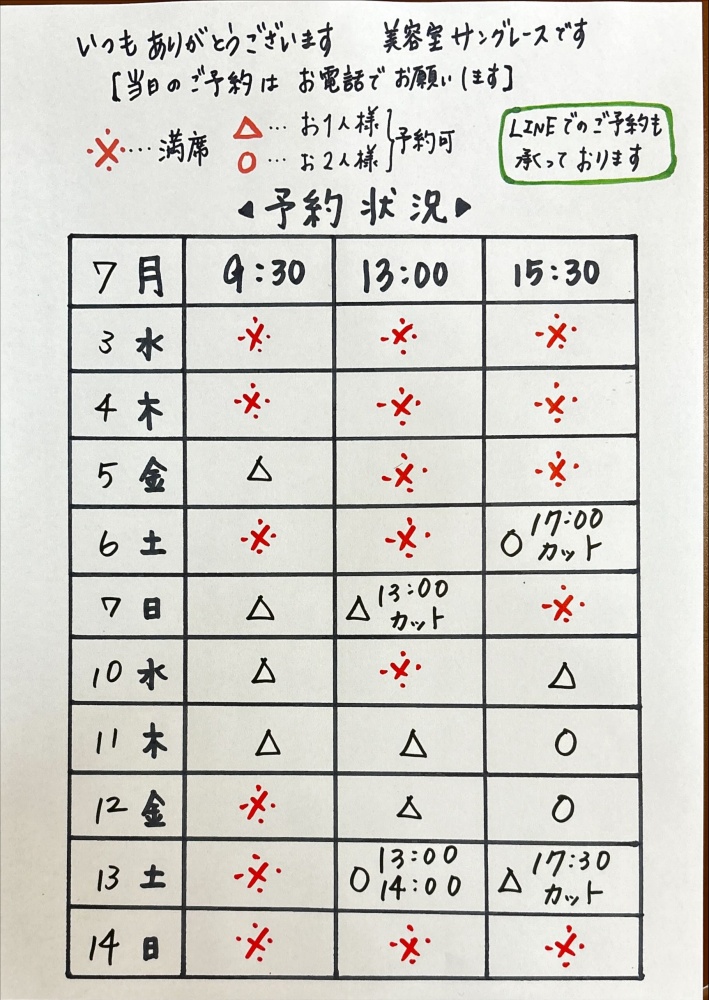 いつもありがとうございます 美容室サングレースです
[当日のご予約は お電話でお願いします]
※…満席
△…お1人様
○…お2人様
予約可
LINEでのご予約も
承っております
◀予約状況▶
7月 9:30 13:00 15:30
3 水 ※ ※ ※
4 木 ※ ※ ※
5 金 △ ※ ※
6 土 ※ ※ ○ 17:00 カット
7 日 △ △ 13:00 カット ※
10 水 △ ※ △
11 木 △ △ ○
12 金 ※ △ ○
13 土 ※ ○ 13:00 14:00 △ 17:30 カット
14 日 ※ ※ ※